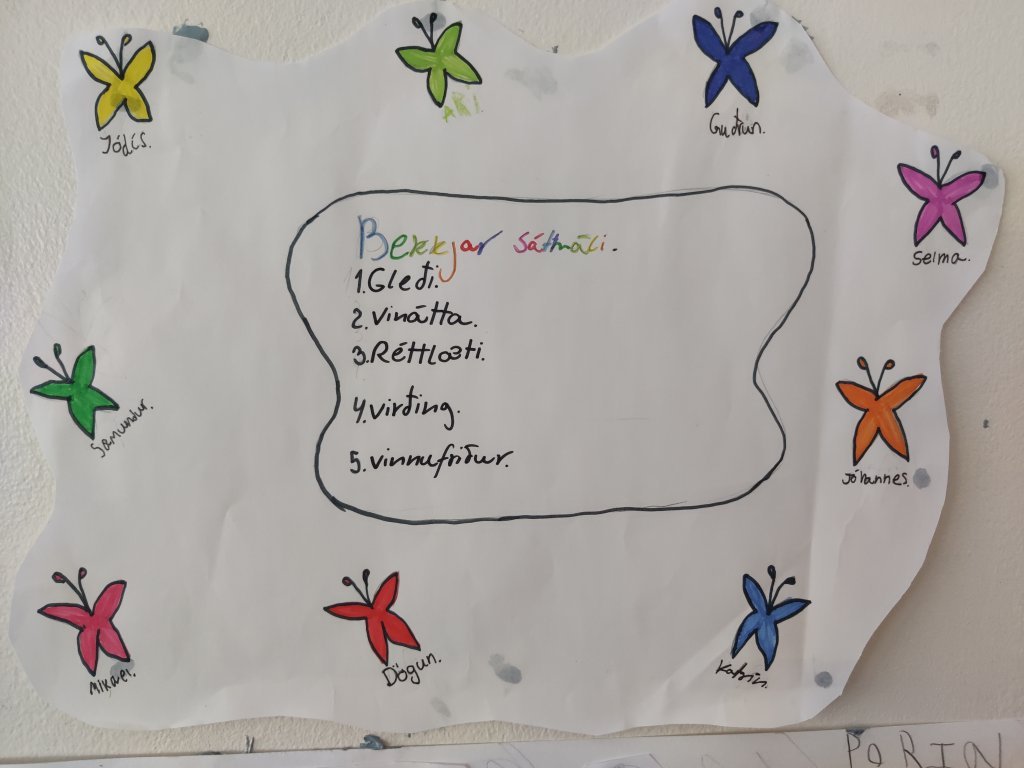 Jódís.
ARI.
Guðrun.
Selma.
Bekkjar sáttmáli.
1. Gleði.
2. vinátta.
3. Réttlæti.
4. virðing.
5. vinnufriður.
Sæmundur.
Jóhannes.
Mikael.
Dögun.
Katrín.
PORIN